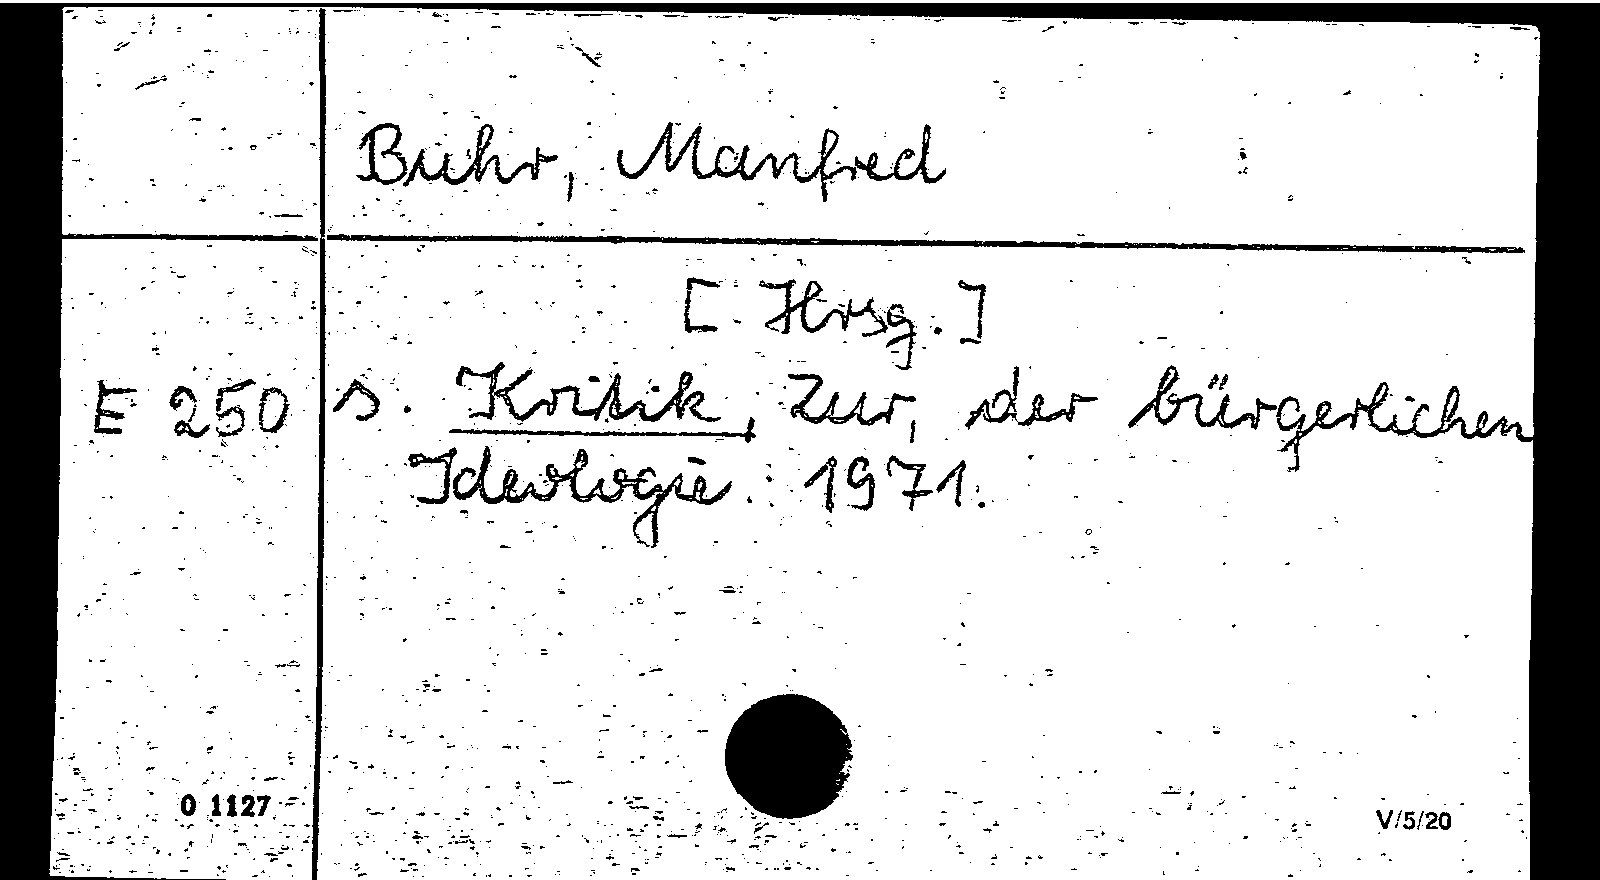 Buhr, Manfred
[Hrsg.]
E 250 s. Kritik, Zur, der bürgerlichen
Ideologie. 1971.
O 1127
V/5/20